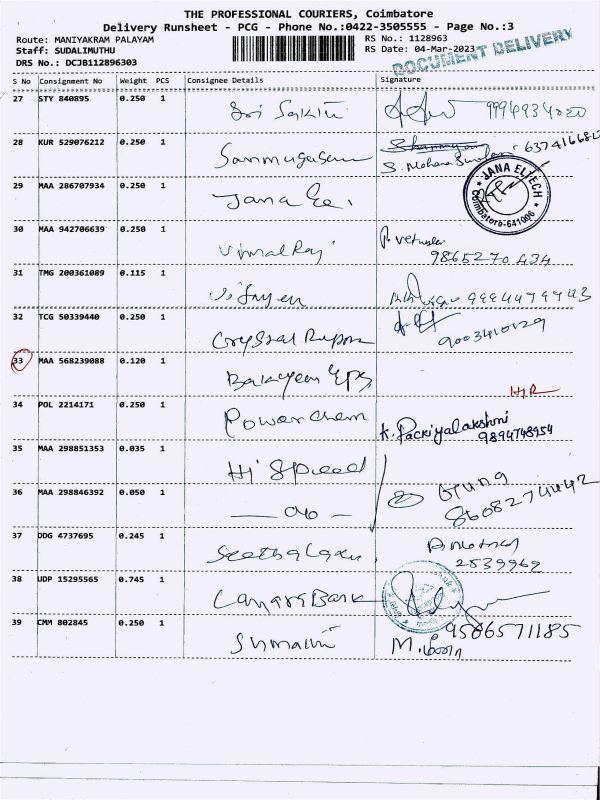 THE PROFESSIONAL COURIERS, Coimbatore
Delivery Runsheet - PCG - Phone No.:0422-3505555 - Page No.:3
Route: MANIYAKRAM PALAYAM RS No.: 1128963
Staff: SUDALIMUTHU RS Date: 04-Mar-2023
DRS No.: DCJB112896303
DOCUMENT DELIVERY
S No Consignment No Weight PCS Consignee Details Signature
27 STY 840895 0.250 1 Sri Sakthi
28 KUR 529076212 0.250 1 Sanmugasam
S. Mohana
JANA ELTECH
Coimbatore-641006
29 MAA 286707934 0.250 1 Jana Ee.
30 MAA 942706639 0.250 1 Vimal Raj
9865270434
31 TMG 200361089 0.115 1
9994479743
32 TCG 50339440 0.250 1 Crystal
9003410129
33 MAA 568239088 0.120 1
HR
34 POL 2214171 0.250 1 Power Chem K. Packiyalakshmi
9894748954
35 MAA 298851353 0.035 1 Hi Speed
36 MAA 298846392 0.050 1 — do —
8608274442
37 DDG 4737695 0.245 1
2539969
38 UDP 15295565 0.745 1 Canara Bank
39 CMM 802845 0.250 1
9566571185